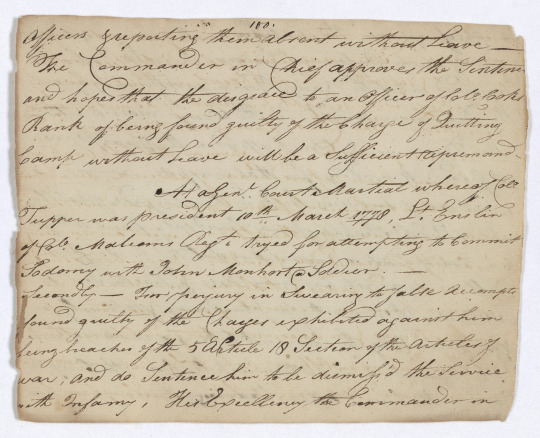 180.
Officers & reporting them absent without Leave —
The Commander in Chief approves the Sentence
and hopes that the disgrace to an Officer of Colo. Cooks
Rank of being found guilty of the Charge of Quitting
Camp without Leave will be a Sufficient Reprimand.
At a Genl. Court Martial whereof Colo.
Tupper was president 10th March 1778, Lt. Enslin
of Colo. Malcoms Regt. tryed for attempting to Commit
Sodomy with John Monhort a Soldier. —
Secondly — For perjury in Swearing to false Accompts
found guilty of the Charges exhibited against him
being breaches of the 5 Article 18 Section of the Articles of
war; and do Sentence him to be dismiss'd the Service
with Infamy, His Excellency the Commander in